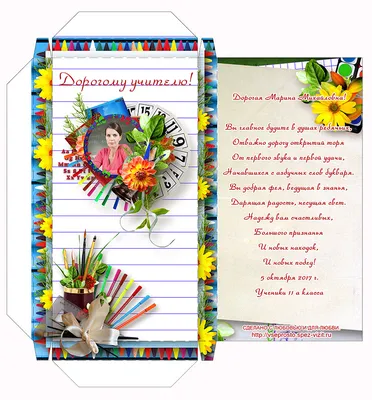 Дорогому учителю!
15
Дорогая Марина Михайловна!
Вы главное будите в душах ребячьих,
Отважно дорогу открытий торя
От первого звука и первой удачи,
Начавшихся с азбучных слов букваря.
Вы добрая фея, ведущая в знанья,
Дарящая радость, несущая свет.
Надежд вам счастливых,
Большого признания
И новых находок,
И новых побед!
5 октября 2017 г.
Ученики 11 а класса
СДЕЛАНО С ЛЮБОВЬЮ И ДЛЯ ЛЮБВИ
http://vseprosto.spez-vizit.ru